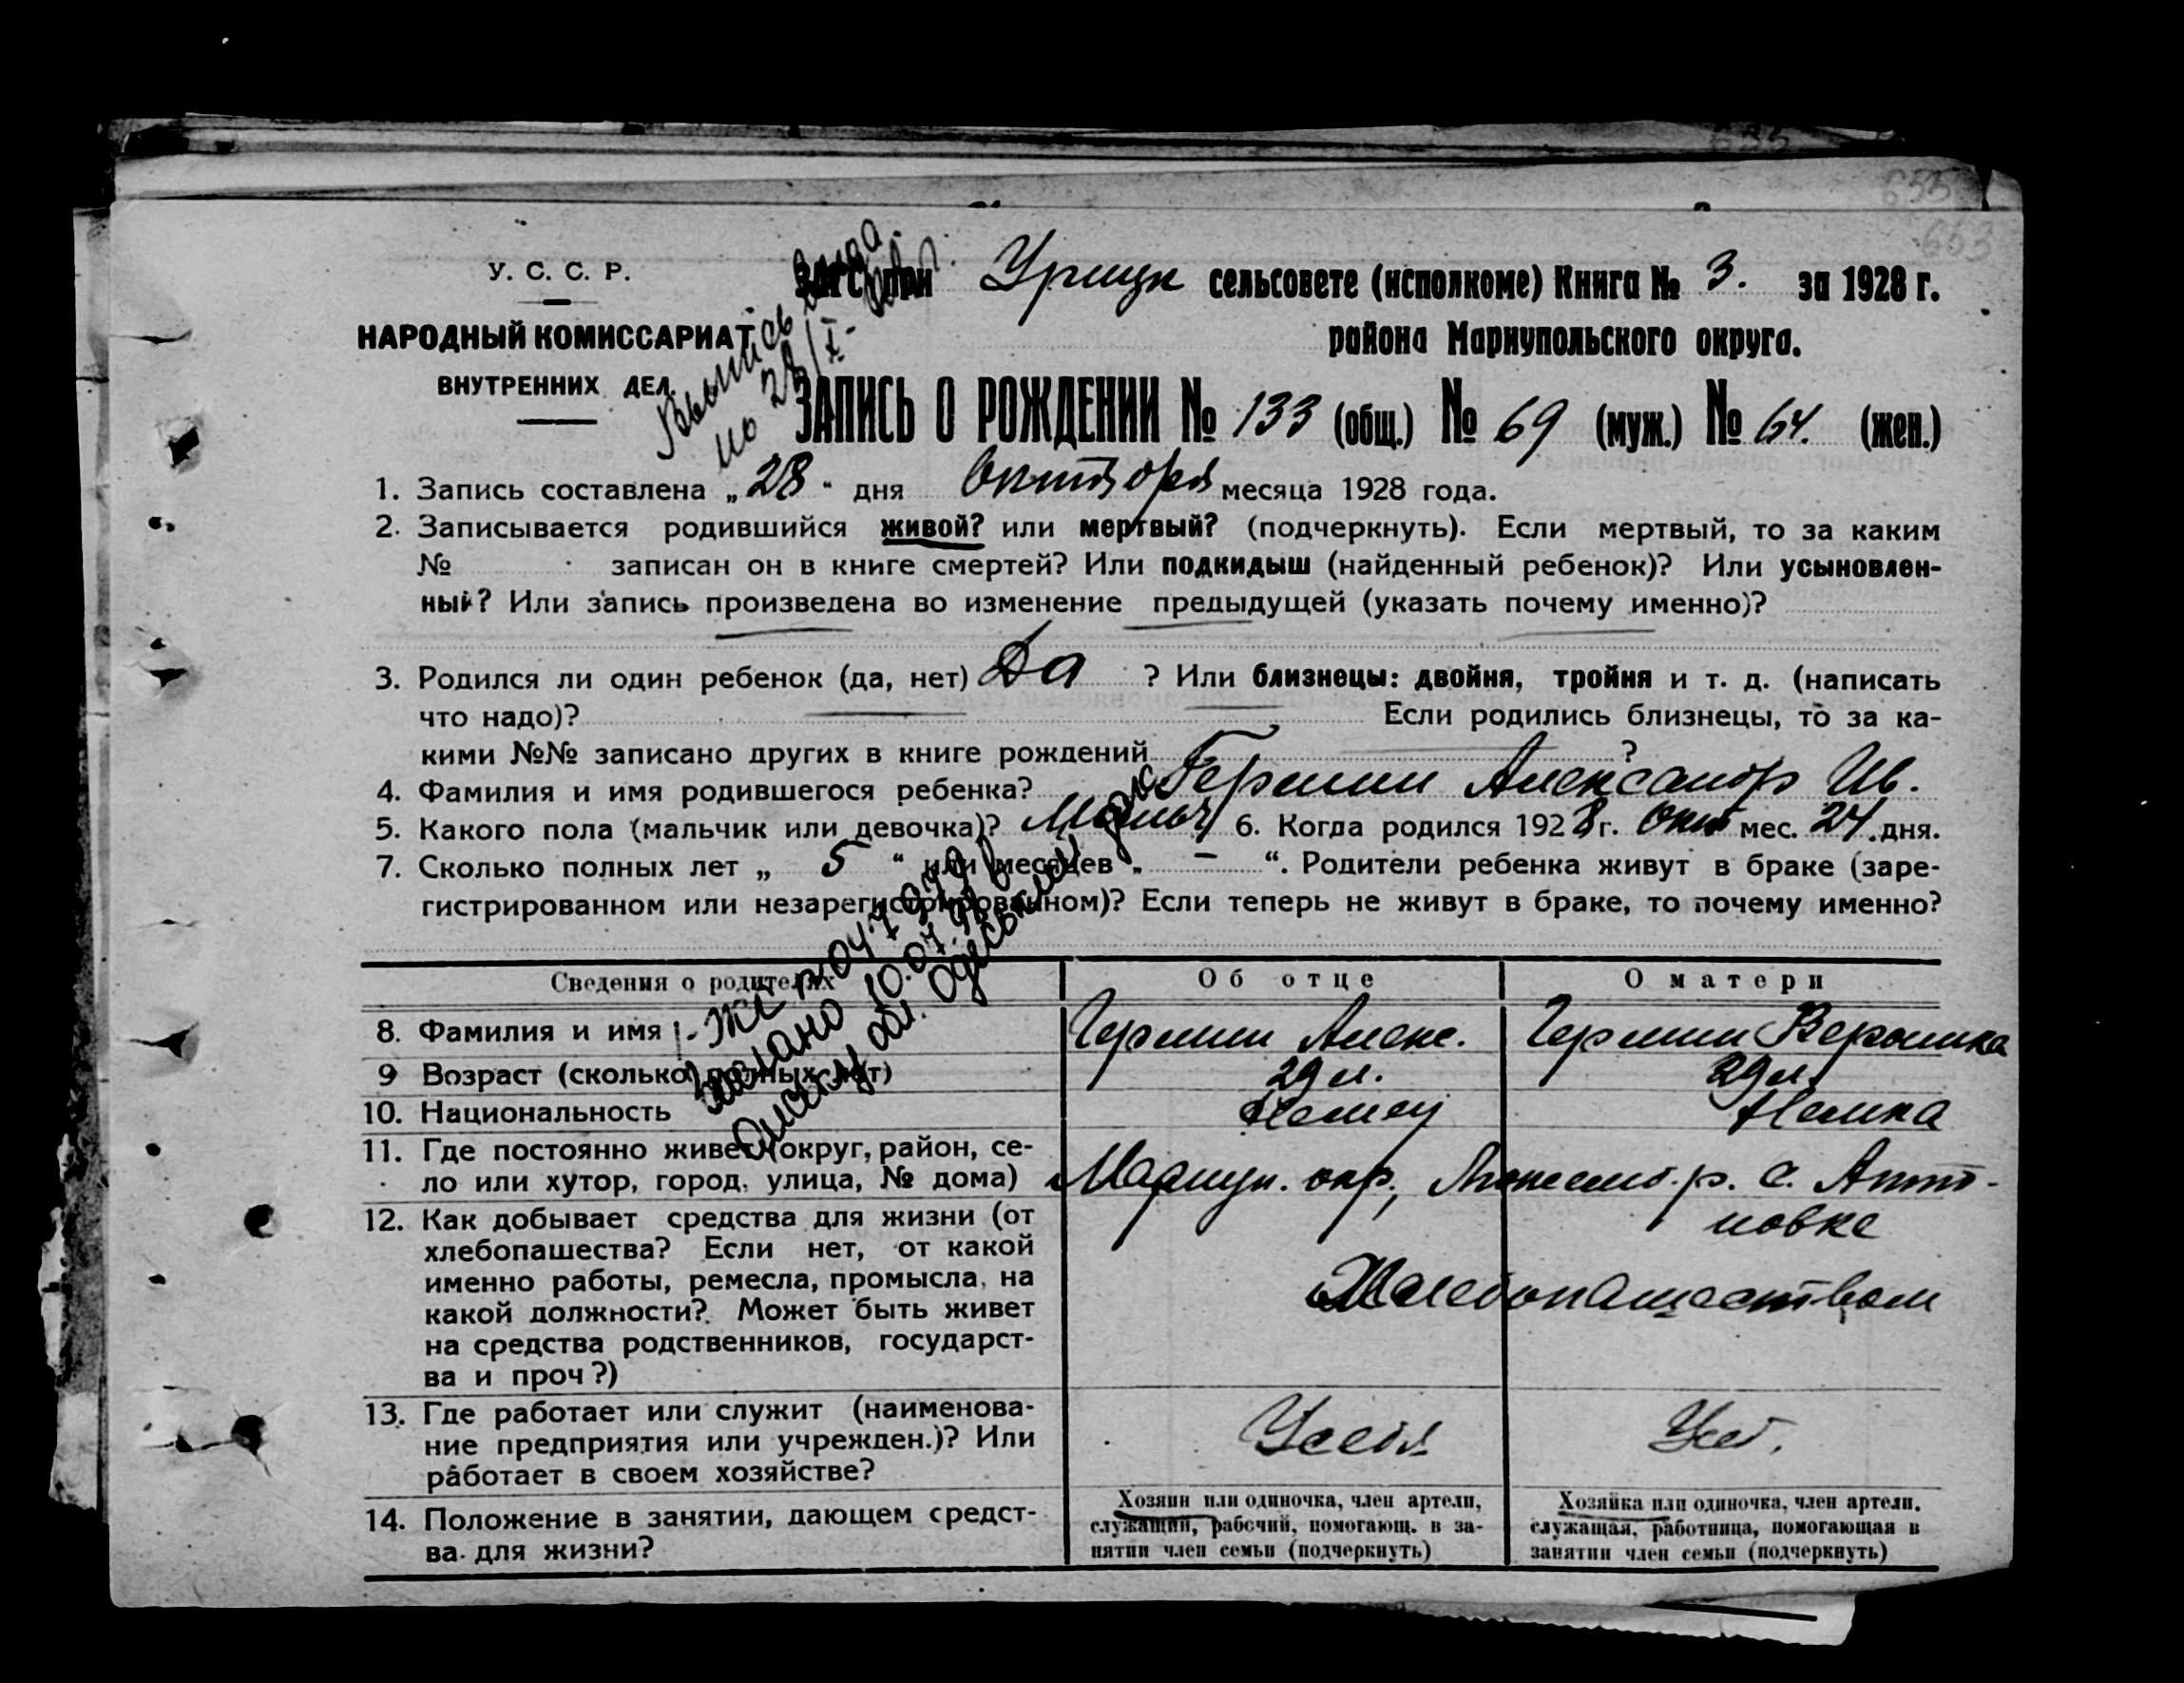 У. С. С. Р.
НАРОДНЫЙ КОМИССАРИАТ
ВНУТРЕННИХ ДЕЛ.
ЗАГС при Урицк сельсовете (исполкоме) Книга № 3. за 1928 г.
района Мариупольского округа.
ЗАПИСЬ О РОЖДЕНИИ № 133 (общ.) № 69 (муж.) № 64. (жен.)
1. Запись составлена „28“ дня Октября месяца 1928 года.
2. Записывается родившийся живой? или мертвый? (подчеркнуть). Если мертвый, то за каким
№ записан он в книге смертей? Или подкидыш (найденный ребенок)? Или усыновлен-
ный? Или запись произведена во изменение предыдущей (указать почему именно)?
3. Родился ли один ребенок (да, нет) Да ? Или близнецы: двойня, тройня и т. д. (написать
что надо)? Если родились близнецы, то за ка-
кими №№ записано других в книге рождений ?
4. Фамилия и имя родившегося ребенка? Александр Ив.
5. Какого пола (мальчик или девочка)? Мальч 6. Когда родился 1928 г. Окт мес. 24 дня.
7. Сколько полных лет „ 5 “ или месяцев „ — “. Родители ребенка живут в браке (заре-
гистрированном или незарегистрированном)? Если теперь не живут в браке, то почему именно?
Сведения о родителях
Об отце
О матери
8. Фамилия и имя
Алекс.
Вероника
9 Возраст (сколько полных лет)
29 л.
29 л.
10. Национальность
Немец
Немка
11. Где постоянно живет (округ, район, се-
ло или хутор, город, улица, № дома)
Мариуп. окр., р. с. Анто-
новке
12. Как добывает средства для жизни (от
хлебопашества? Если нет, от какой
именно работы, ремесла, промысла, на
какой должности? Может быть живет
на средства родственников, государст-
ва и проч ?)
Хлебопашеством
13. Где работает или служит (наименова-
ние предприятия или учрежден.)? Или
работает в своем хозяйстве?
У себя
У себ.
14. Положение в занятии, дающем средст-
ва для жизни?
Хозяин или одиночка, член артели,
служащий, рабочий, помогающ. в за-
нятии член семьи (подчеркнуть)
Хозяйка или одиночка, член артели.
служащая, работница, помогающая в
занятии член семьи (подчеркнуть)